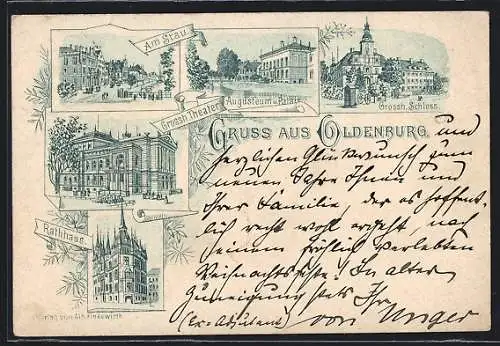 Am Stau.
Augusteum u. Palais
Grossh. Schloss.
Grossh. Theater
GRUSS AUS OLDENBURG. und
herzlichen Glückwunsch zum
neuen Jahre Ihnen und
Ihrer Familie, der es hoffent-
lich recht wohl ergeht, nach
einem fröhlich verlebten
Weihnachtsfeste! In alter
Zuneigung stets Ihr
(Ex-Adjutant) von Unger
Rathhaus